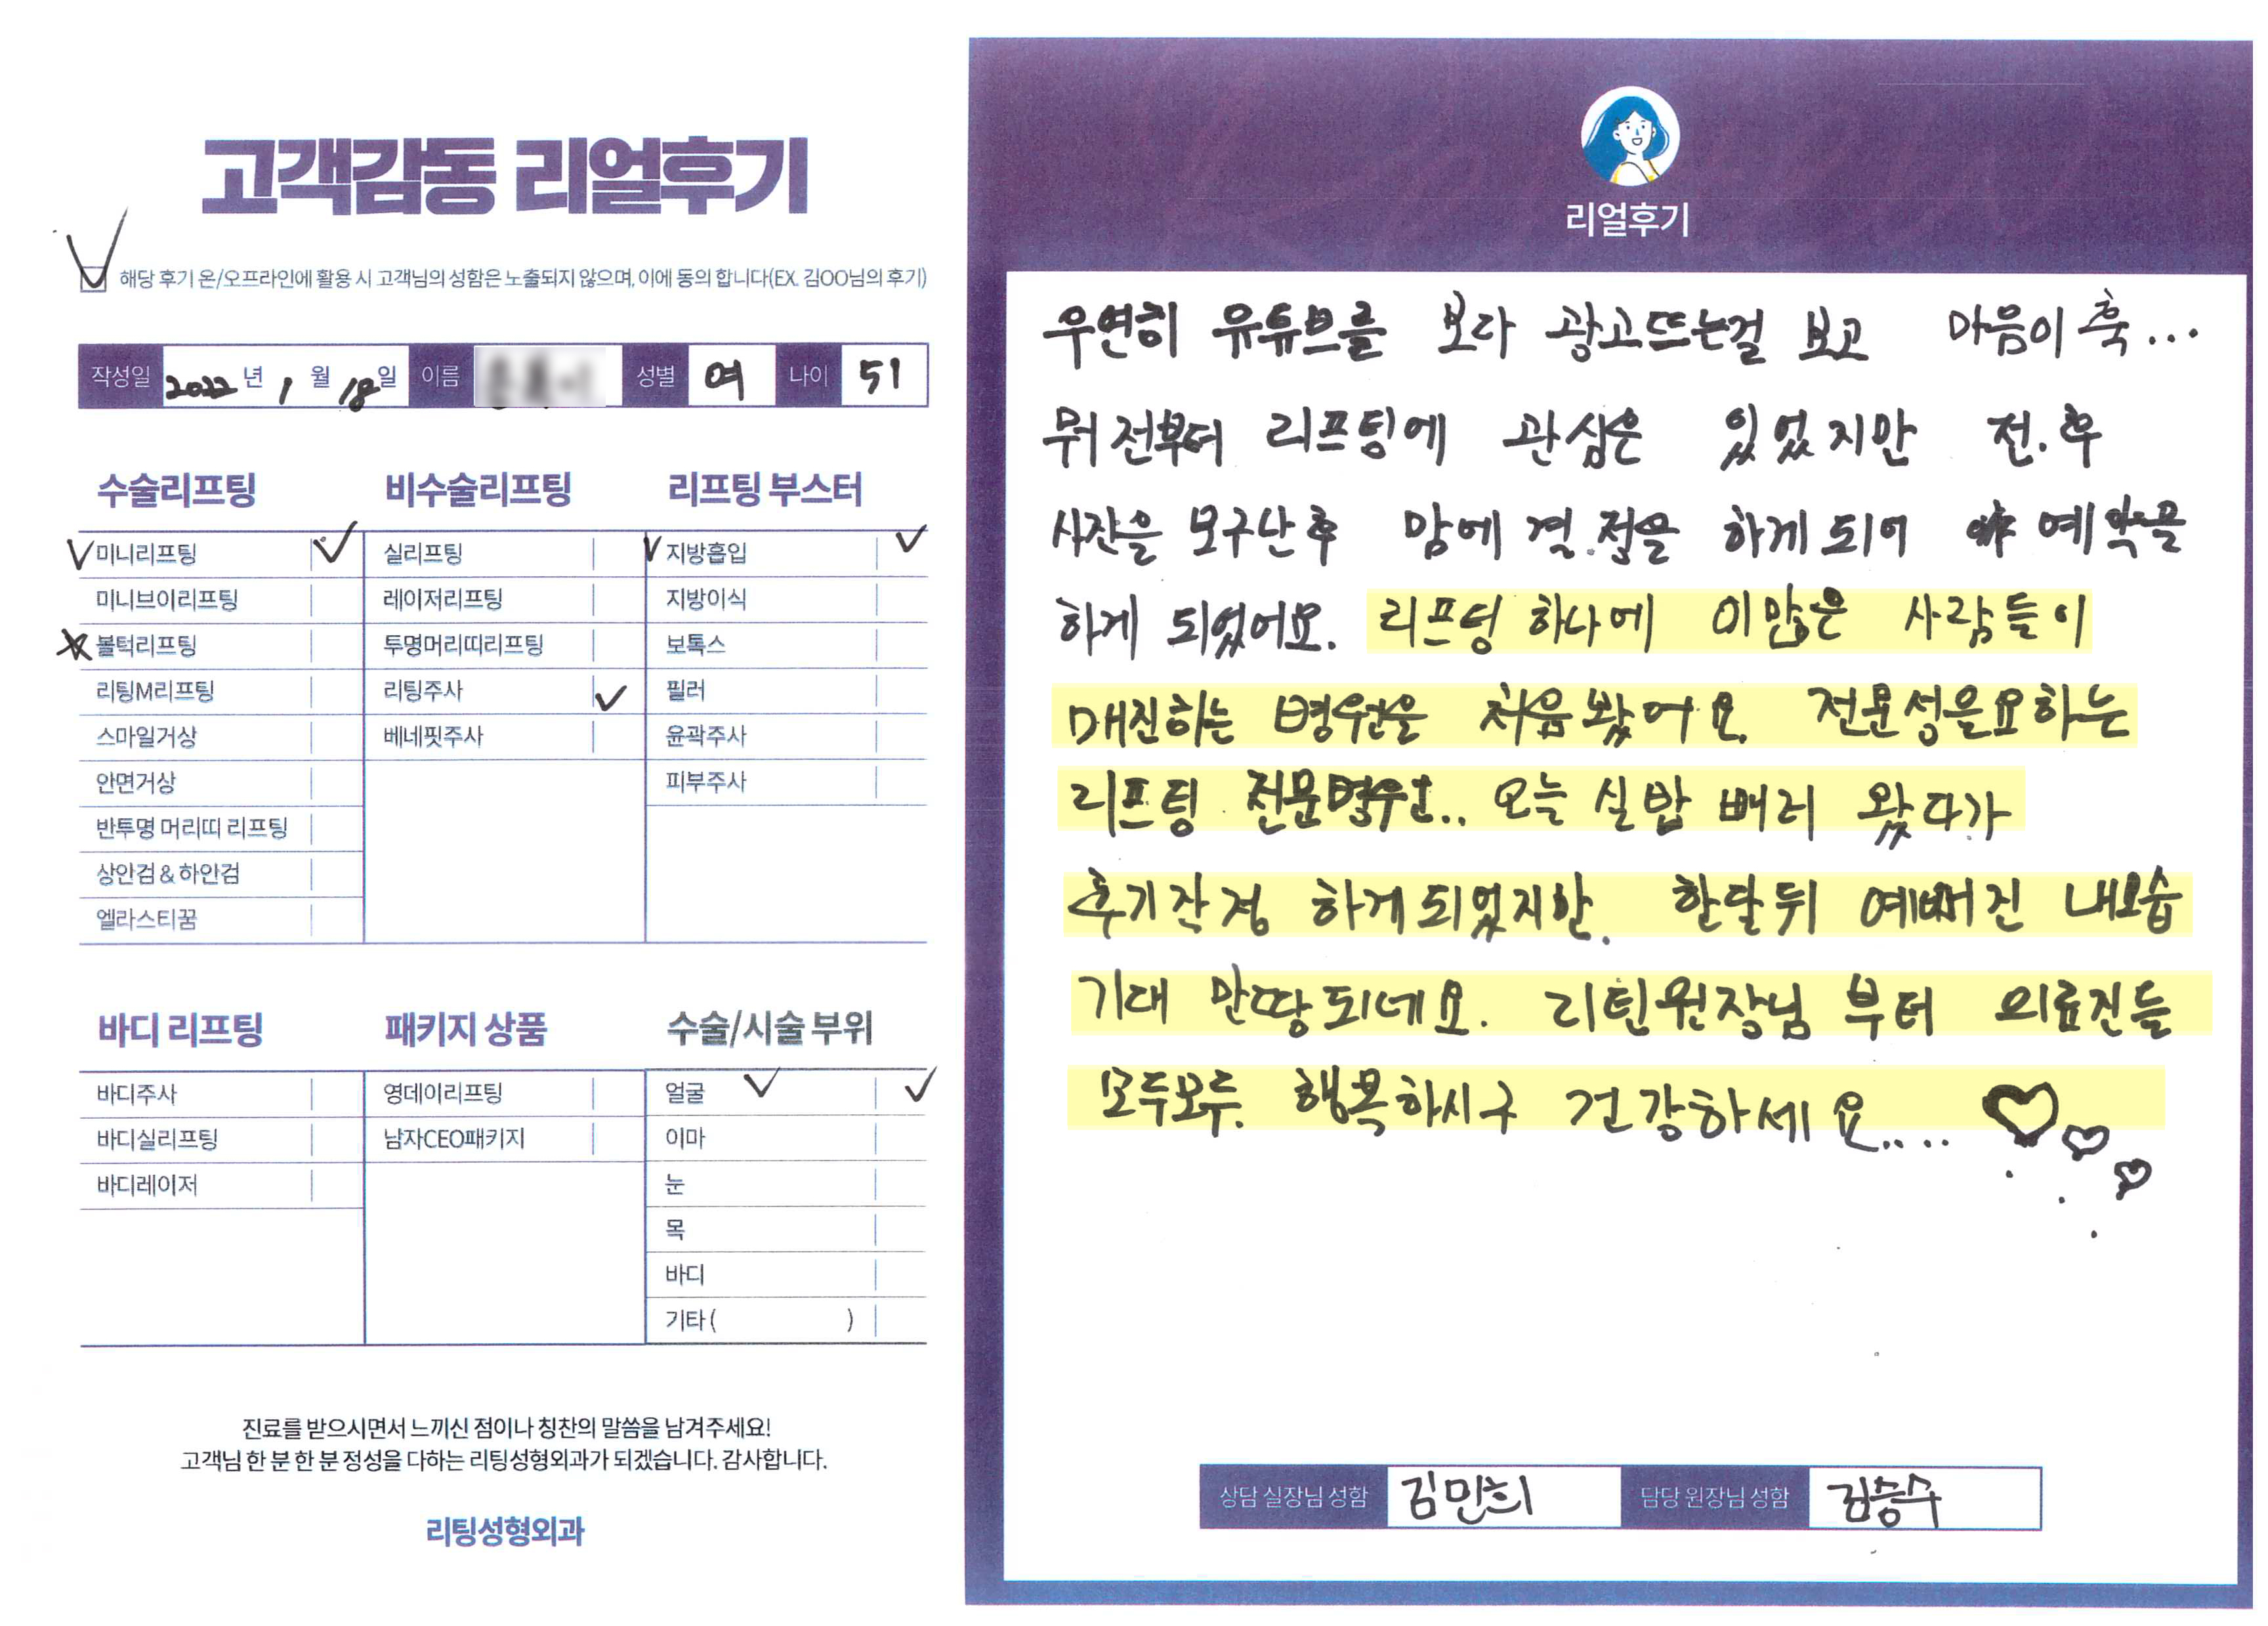 고객감동 리얼후기
해당 후기 온/오프라인에 활용 시 고객님의 성함은 노출되지 않으며, 이에 동의 합니다(EX. 김OO님의 후기)
작성일 2022 년 1 월 18 일 이름 성별 여 나이 51
수술리프팅
미니리프팅
미니브이리프팅
볼턱리프팅
리팅M리프팅
스마일거상
안면거상
반투명 머리띠 리프팅
상안검 & 하안검
엘라스티꿈
비수술리프팅
실리프팅
레이저리프팅
투명머리띠리프팅
리팅주사
베네핏주사
리프팅 부스터
지방흡입
지방이식
보톡스
필러
윤곽주사
피부주사
바디 리프팅
바디주사
바디실리프팅
바디레이저
패키지 상품
영데이리프팅
남자CEO패키지
수술/시술 부위
얼굴
이마
눈
목
바디
기타 ( )
진료를 받으시면서 느끼신 점이나 칭찬의 말씀을 남겨주세요!
고객님 한 분 한 분 정성을 다하는 리팅성형외과가 되겠습니다. 감사합니다.
리팅성형외과
리얼후기
우연히 유튜브를 보다 광고뜨는걸 보고 마음이 훅...
뭐 전부터 리프팅에 관심은 있었지만 전.후
사진을 보구난후 맘에 결.정을 하게되어 예약을
하게 되었어요. 리프팅 하나에 이많은 사람들이
매진하는 병원을 처음봤어요. 전문성을요하는
리프팅 전문병원.. 오늘 실밥 빼러 왔다가
후기작성 하게되었지만. 한달뒤 예뻐진 내모습
기대 만땅되네요. 리틴원장님 부터 의료진들
모두모두. 행복하시구 건강하세요....
상담 실장님 성함 김민희 담당 원장님 성함 김승수